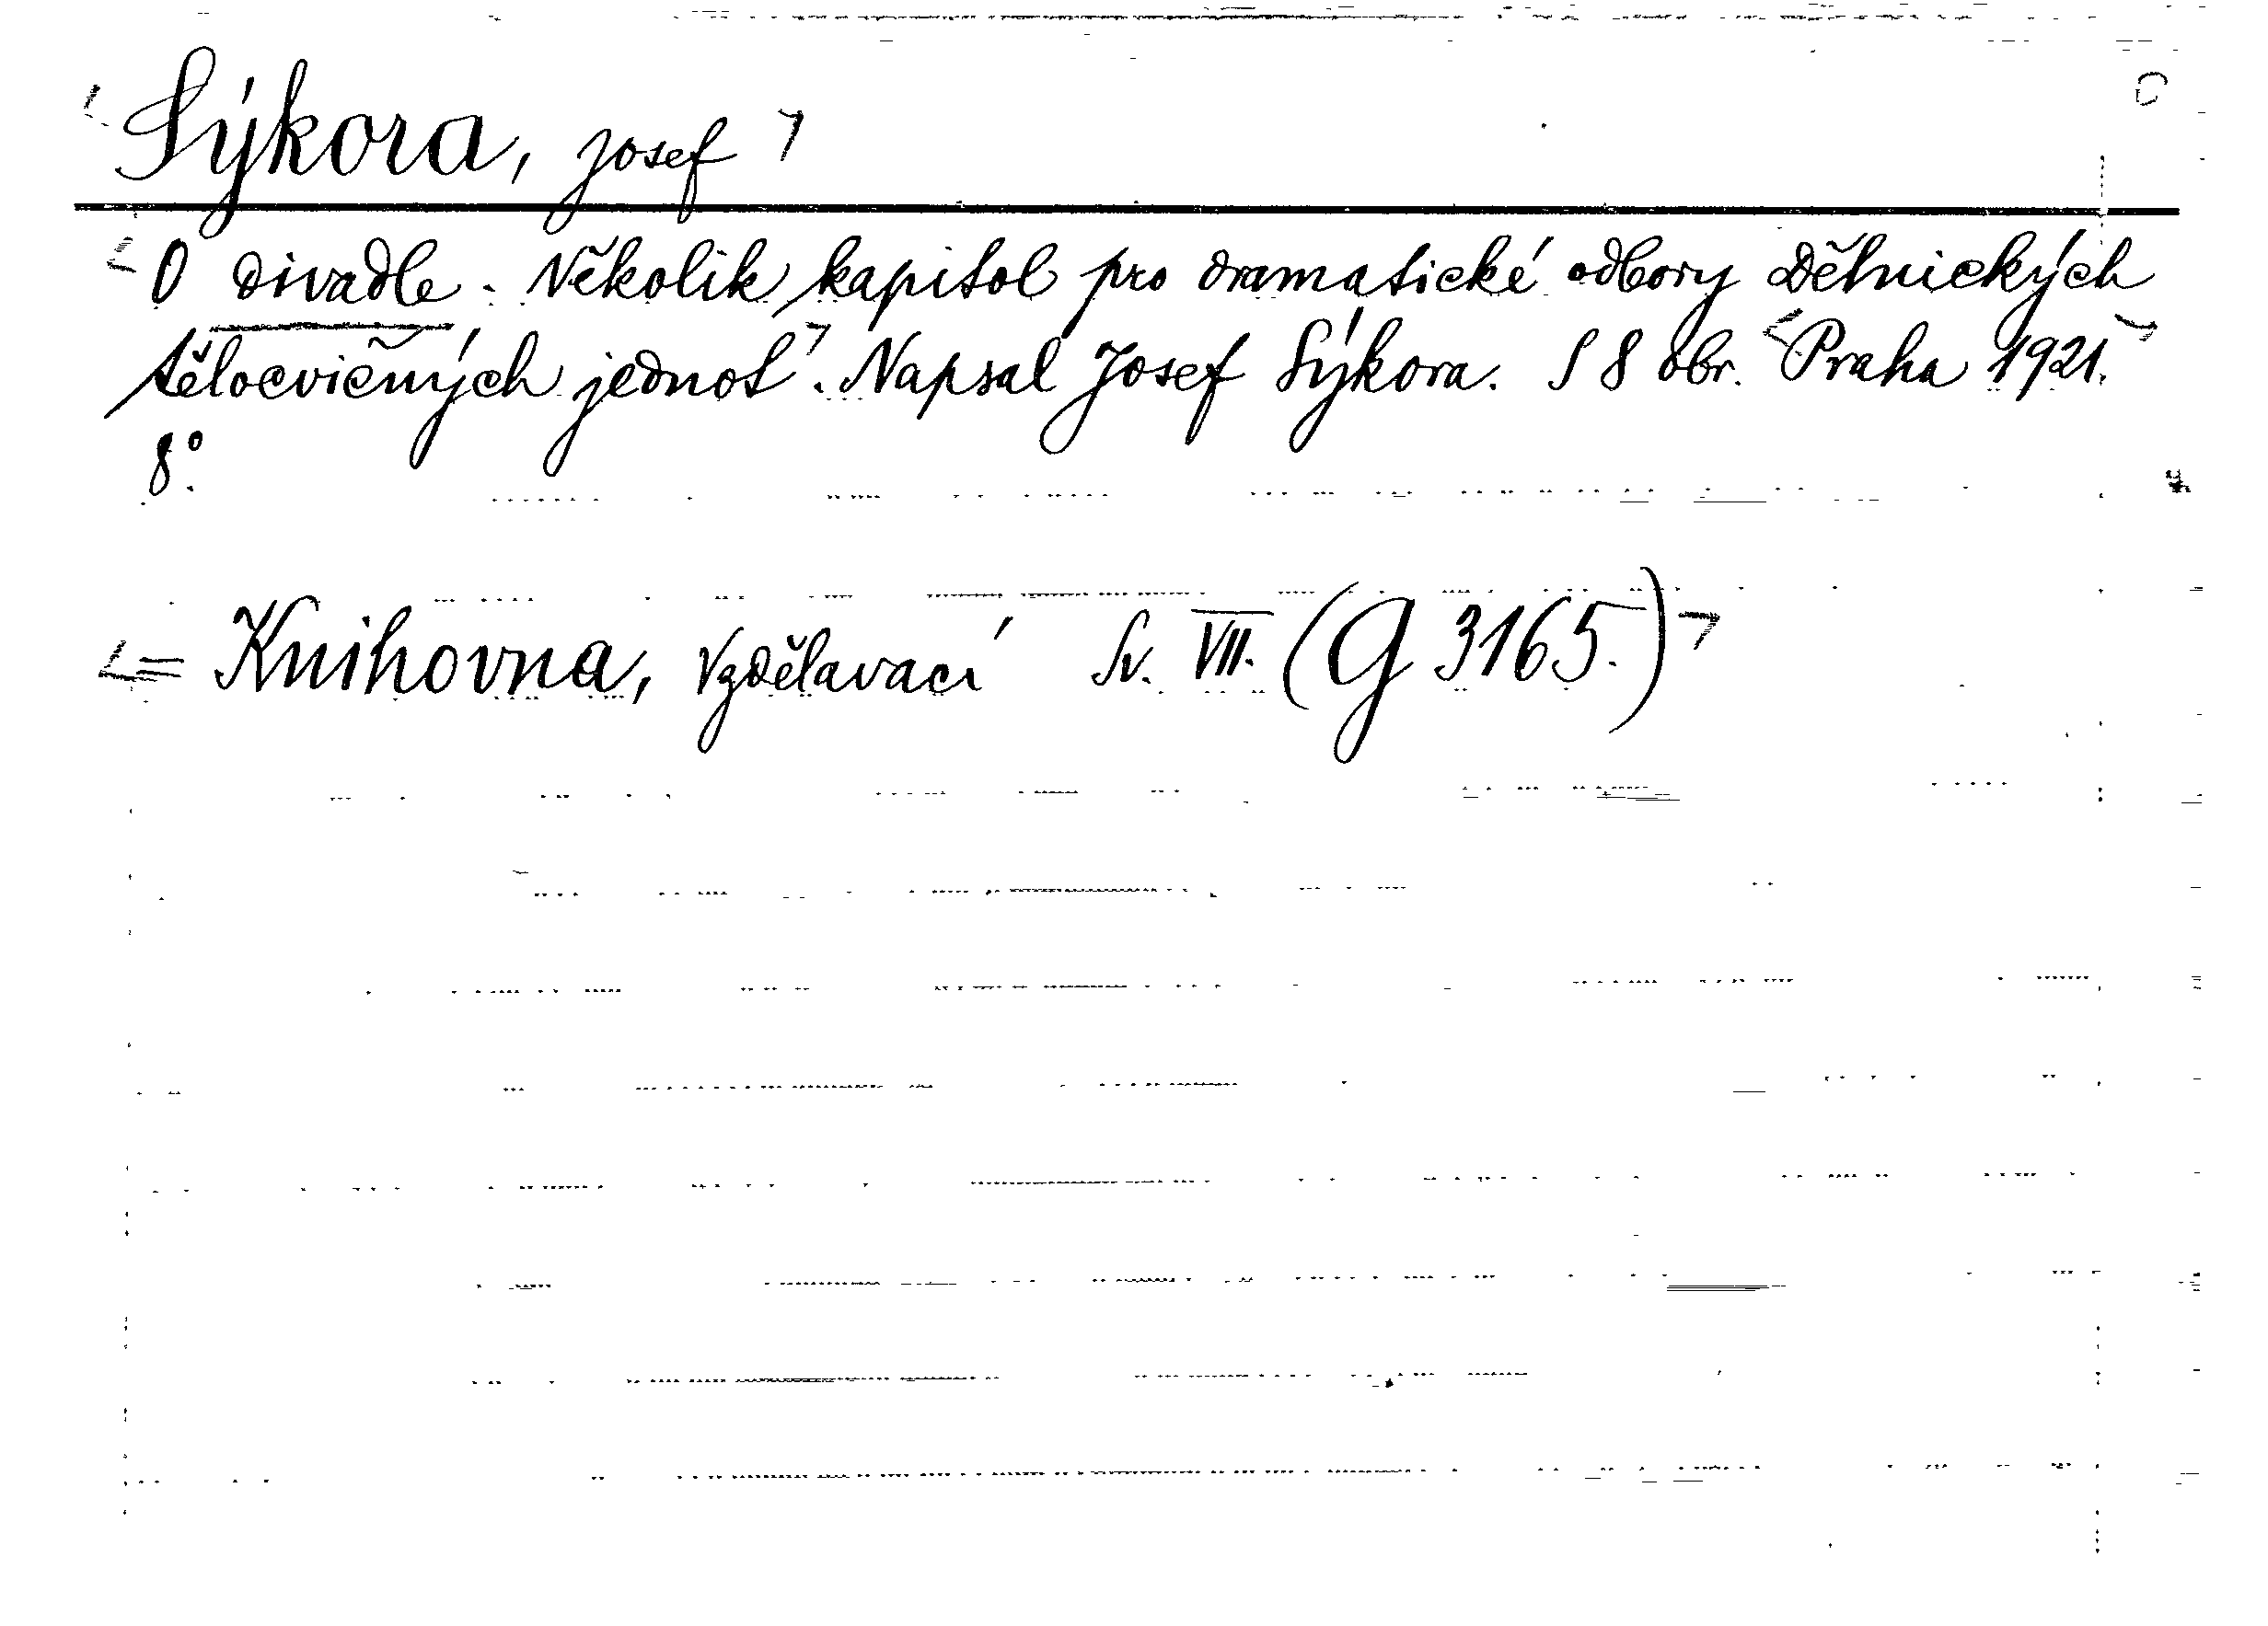 Sýkora, Josef
O divadle. Několik kapitol pro dramatické odbory Dělnických
tělocvičných jednot. Napsal Josef Sýkora. S 8 obr. Praha 1921.
8°.
= Knihovna, Vzdělavací Sv. VII. (G 3165.)